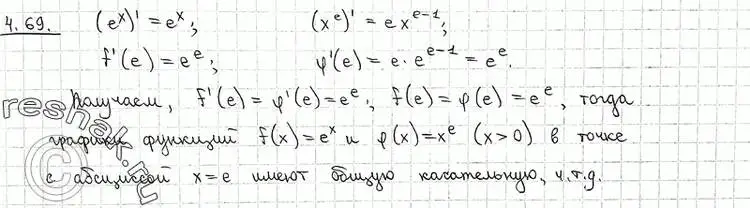 4.69. (eˣ)' = eˣ; (xᵉ)' = e x^(e-1);
f'(e) = eᵉ; φ'(e) = e · e^(e-1) = eᵉ.
Получаем, f'(e) = φ'(e) = eᵉ; f(e) = φ(e) = eᵉ, тогда
графики функций f(x) = eˣ и φ(x) = xᵉ (x > 0) в точке
с абсциссой x = e имеют общую касательную, ч.т.д.
reshak.ru